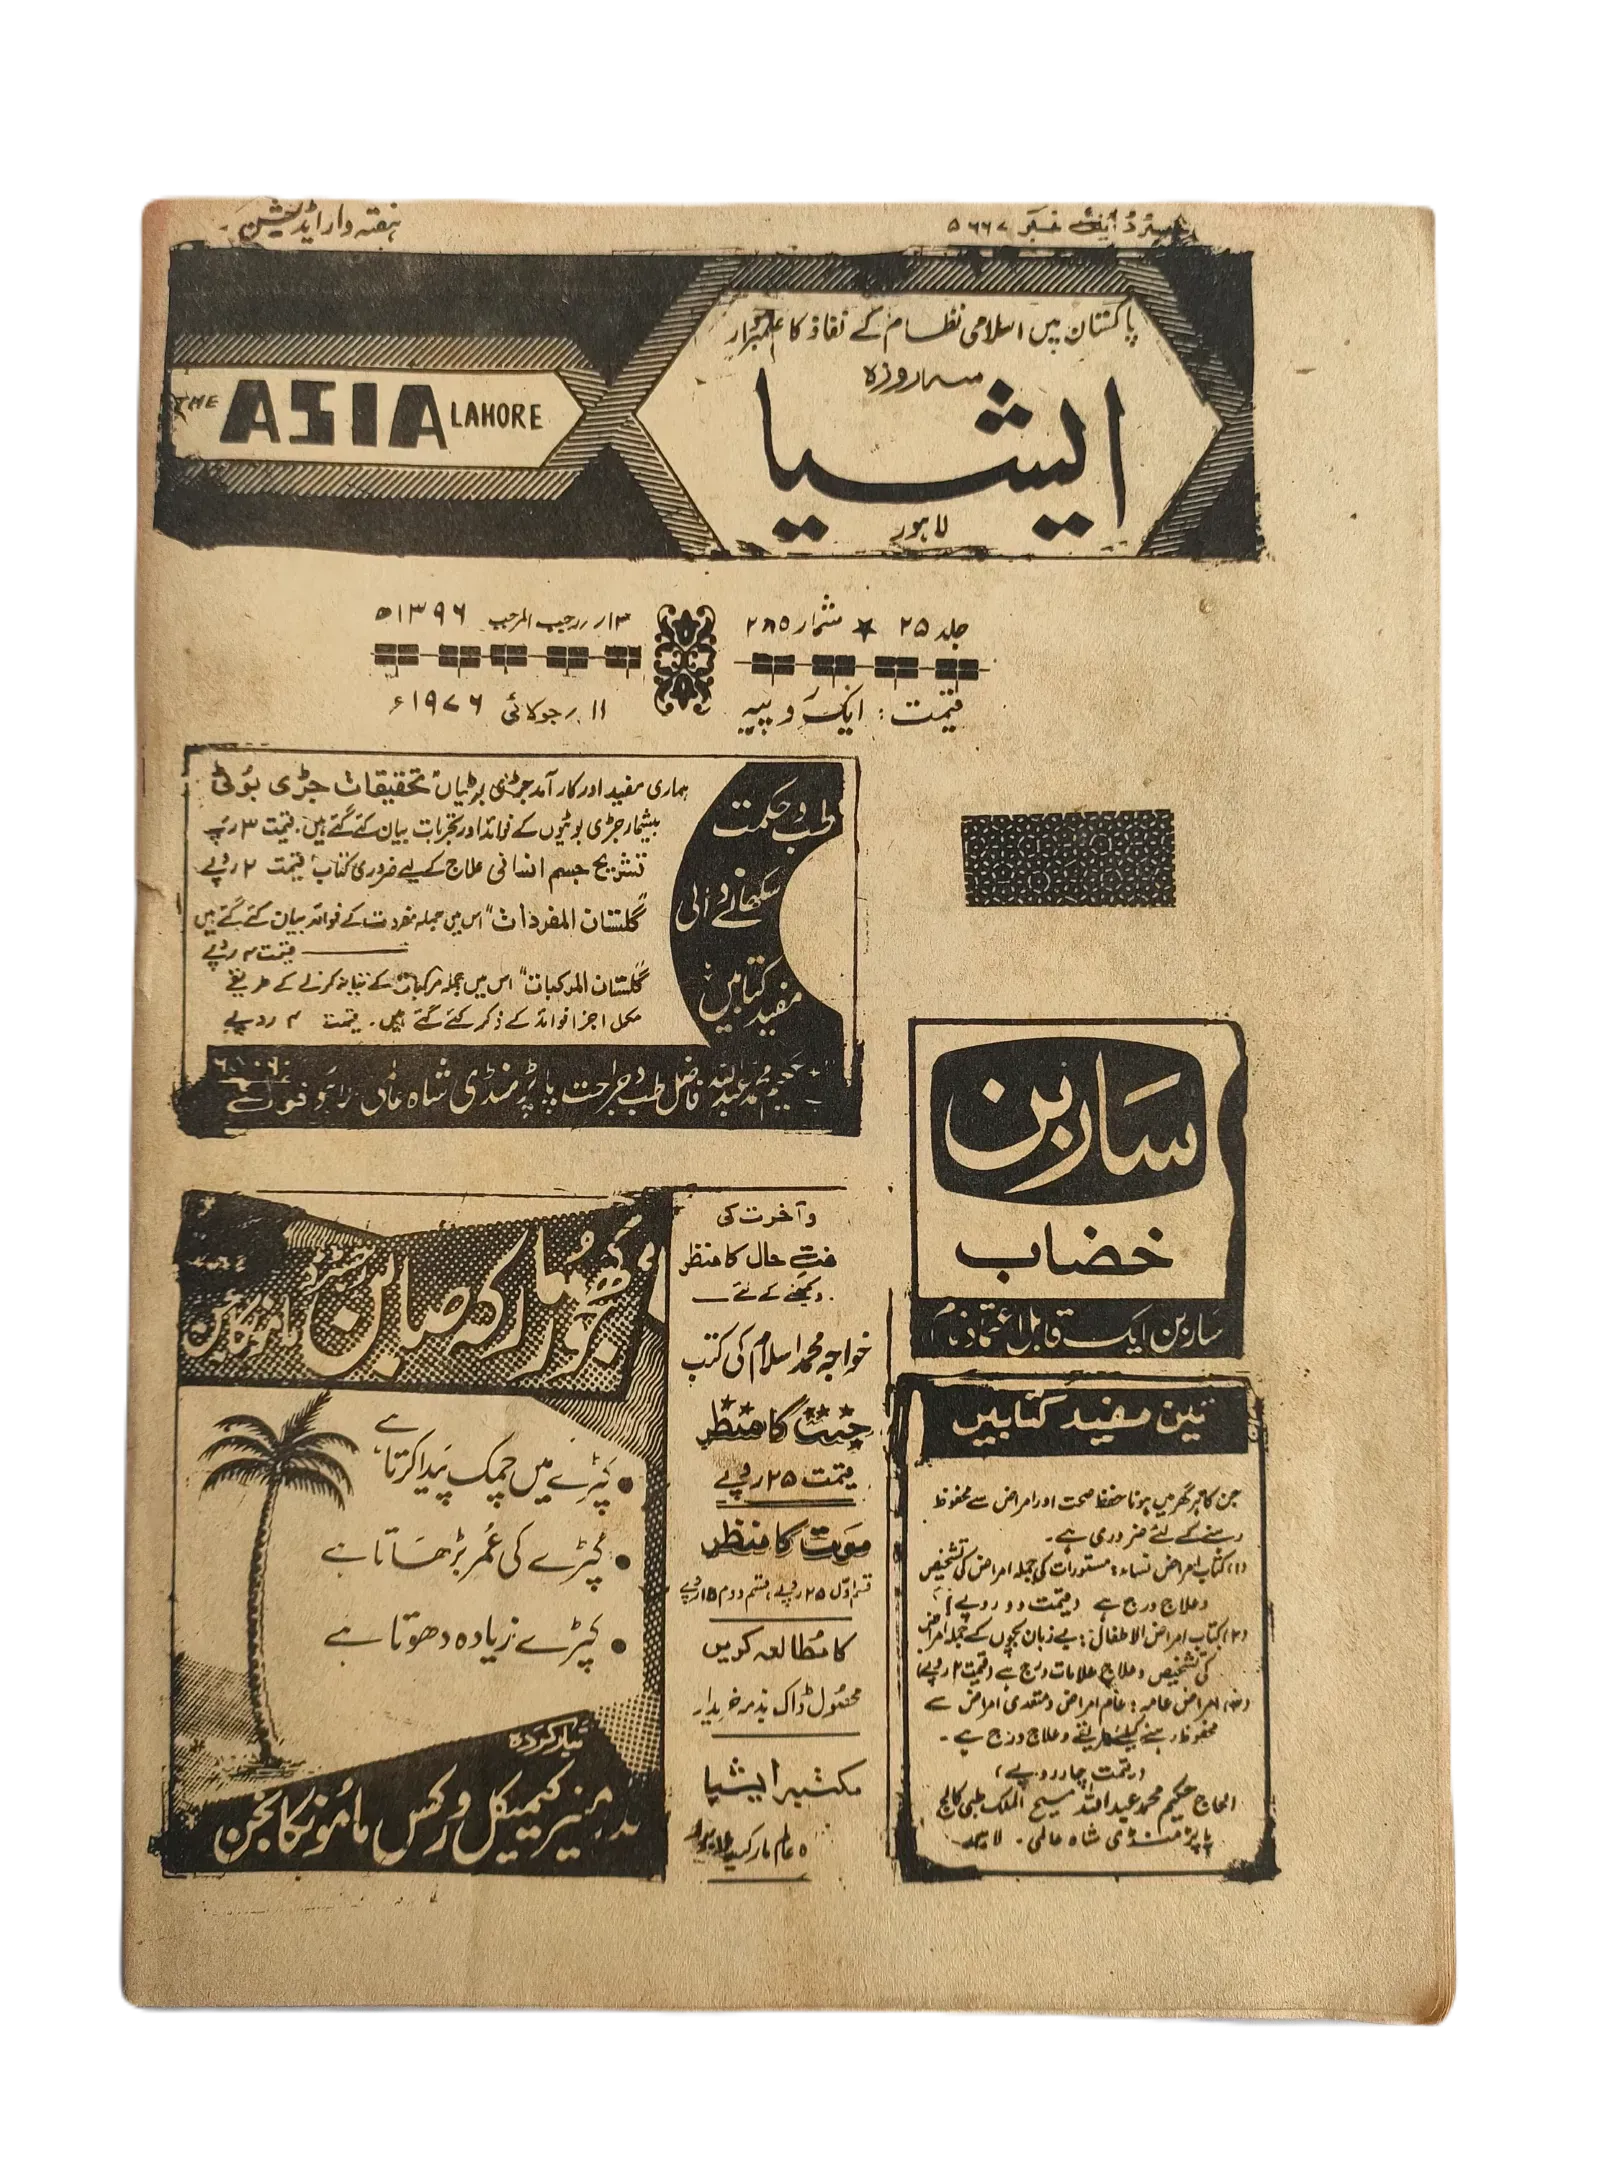 ہفتہ وار ایڈیشن
رجسٹرڈ ایل نمبر ۵۶۶۷
پاکستان میں اسلامی نظام کے نفاذ کا علمبردار
سہ روزہ
ایشیا
لاہور
THE ASIA LAHORE
جلد ۲۵ ★ شمار ۲۸۵
۱۳ رجب المرجب ۱۳۹۶ھ
قیمت: ایک روپیہ
۱۱ جولائی ۱۹۷۶ء
طب و حکمت
سکھانے والی
مفید کتابیں
ہماری مفید اور کارآمد جڑی بوٹیاں تحقیقات جڑی بوٹی
بیشمار جڑی بوٹیوں کے فوائد اور تجربات بیان کئے گئے ہیں۔ قیمت ۳ روپے
تشریح جسم انسانی علاج کے لیے ضروری کتاب قیمت ۲ روپے
"گلستان المفردات" اس میں جملہ مفردات کے فوائد بیان کئے گئے ہیں
قیمت ۴ روپے
"گلستان المرکبات" اس میں جملہ مرکبات کے تیار کرنے کے طریقے
مکمل اجزا فوائد کے ذکر کئے گئے ہیں۔ قیمت ۴ روپے
حکیم محمد عبداللہ فاضل طب و جراحت پاپڑ منڈی شاہ عالم لاہور فون
سارین
خضاب
سارین ایک قابل اعتماد نام
کھجور مارکہ صابن
کپڑے میں چمک پیدا کرتا ہے
کپڑے کی عمر بڑھاتا ہے
کپڑے زیادہ دھوتا ہے
تیار کردہ
بدر منیر کیمیکل ورکس ماموں کانجن
و آخرت کی
حال کا منظر
دیکھنے کے لئے
خواجہ محمد اسلام کی کتب
جنت کا منظر
قیمت ۲۵ روپے
موت کا منظر
قسم اوّل ۲۵ روپے، قسم دوم ۱۵ روپے
کا مطالعہ کریں
محصول ڈاک بذمہ خریدار
مکتبہ ایشیا
۵ عالم مارکیٹ لاہور
تین مفید کتابیں
جن کا ہر گھر میں ہونا حفظ صحت اور امراض سے محفوظ
رہنے کے لئے ضروری ہے۔
(۱) کتاب امراض نساء: مستورات کی جملہ امراض کی تشخیص
و علاج درج ہے (قیمت دو روپے)
(۲) کتاب امراض الاطفال: بے زبان بچوں کے جملہ امراض
کی تشخیص و علاج علامات درج ہے (قیمت ۲ روپے)
(۳) امراض عامہ: عام امراض و متعدی امراض سے
محفوظ رہنے کیلئے طریقے و علاج درج ہے۔
(قیمت چار روپے)
الحاج حکیم محمد عبداللہ مسیح الملک طبی کالج
پاپڑ منڈی شاہ عالمی۔ لاہور